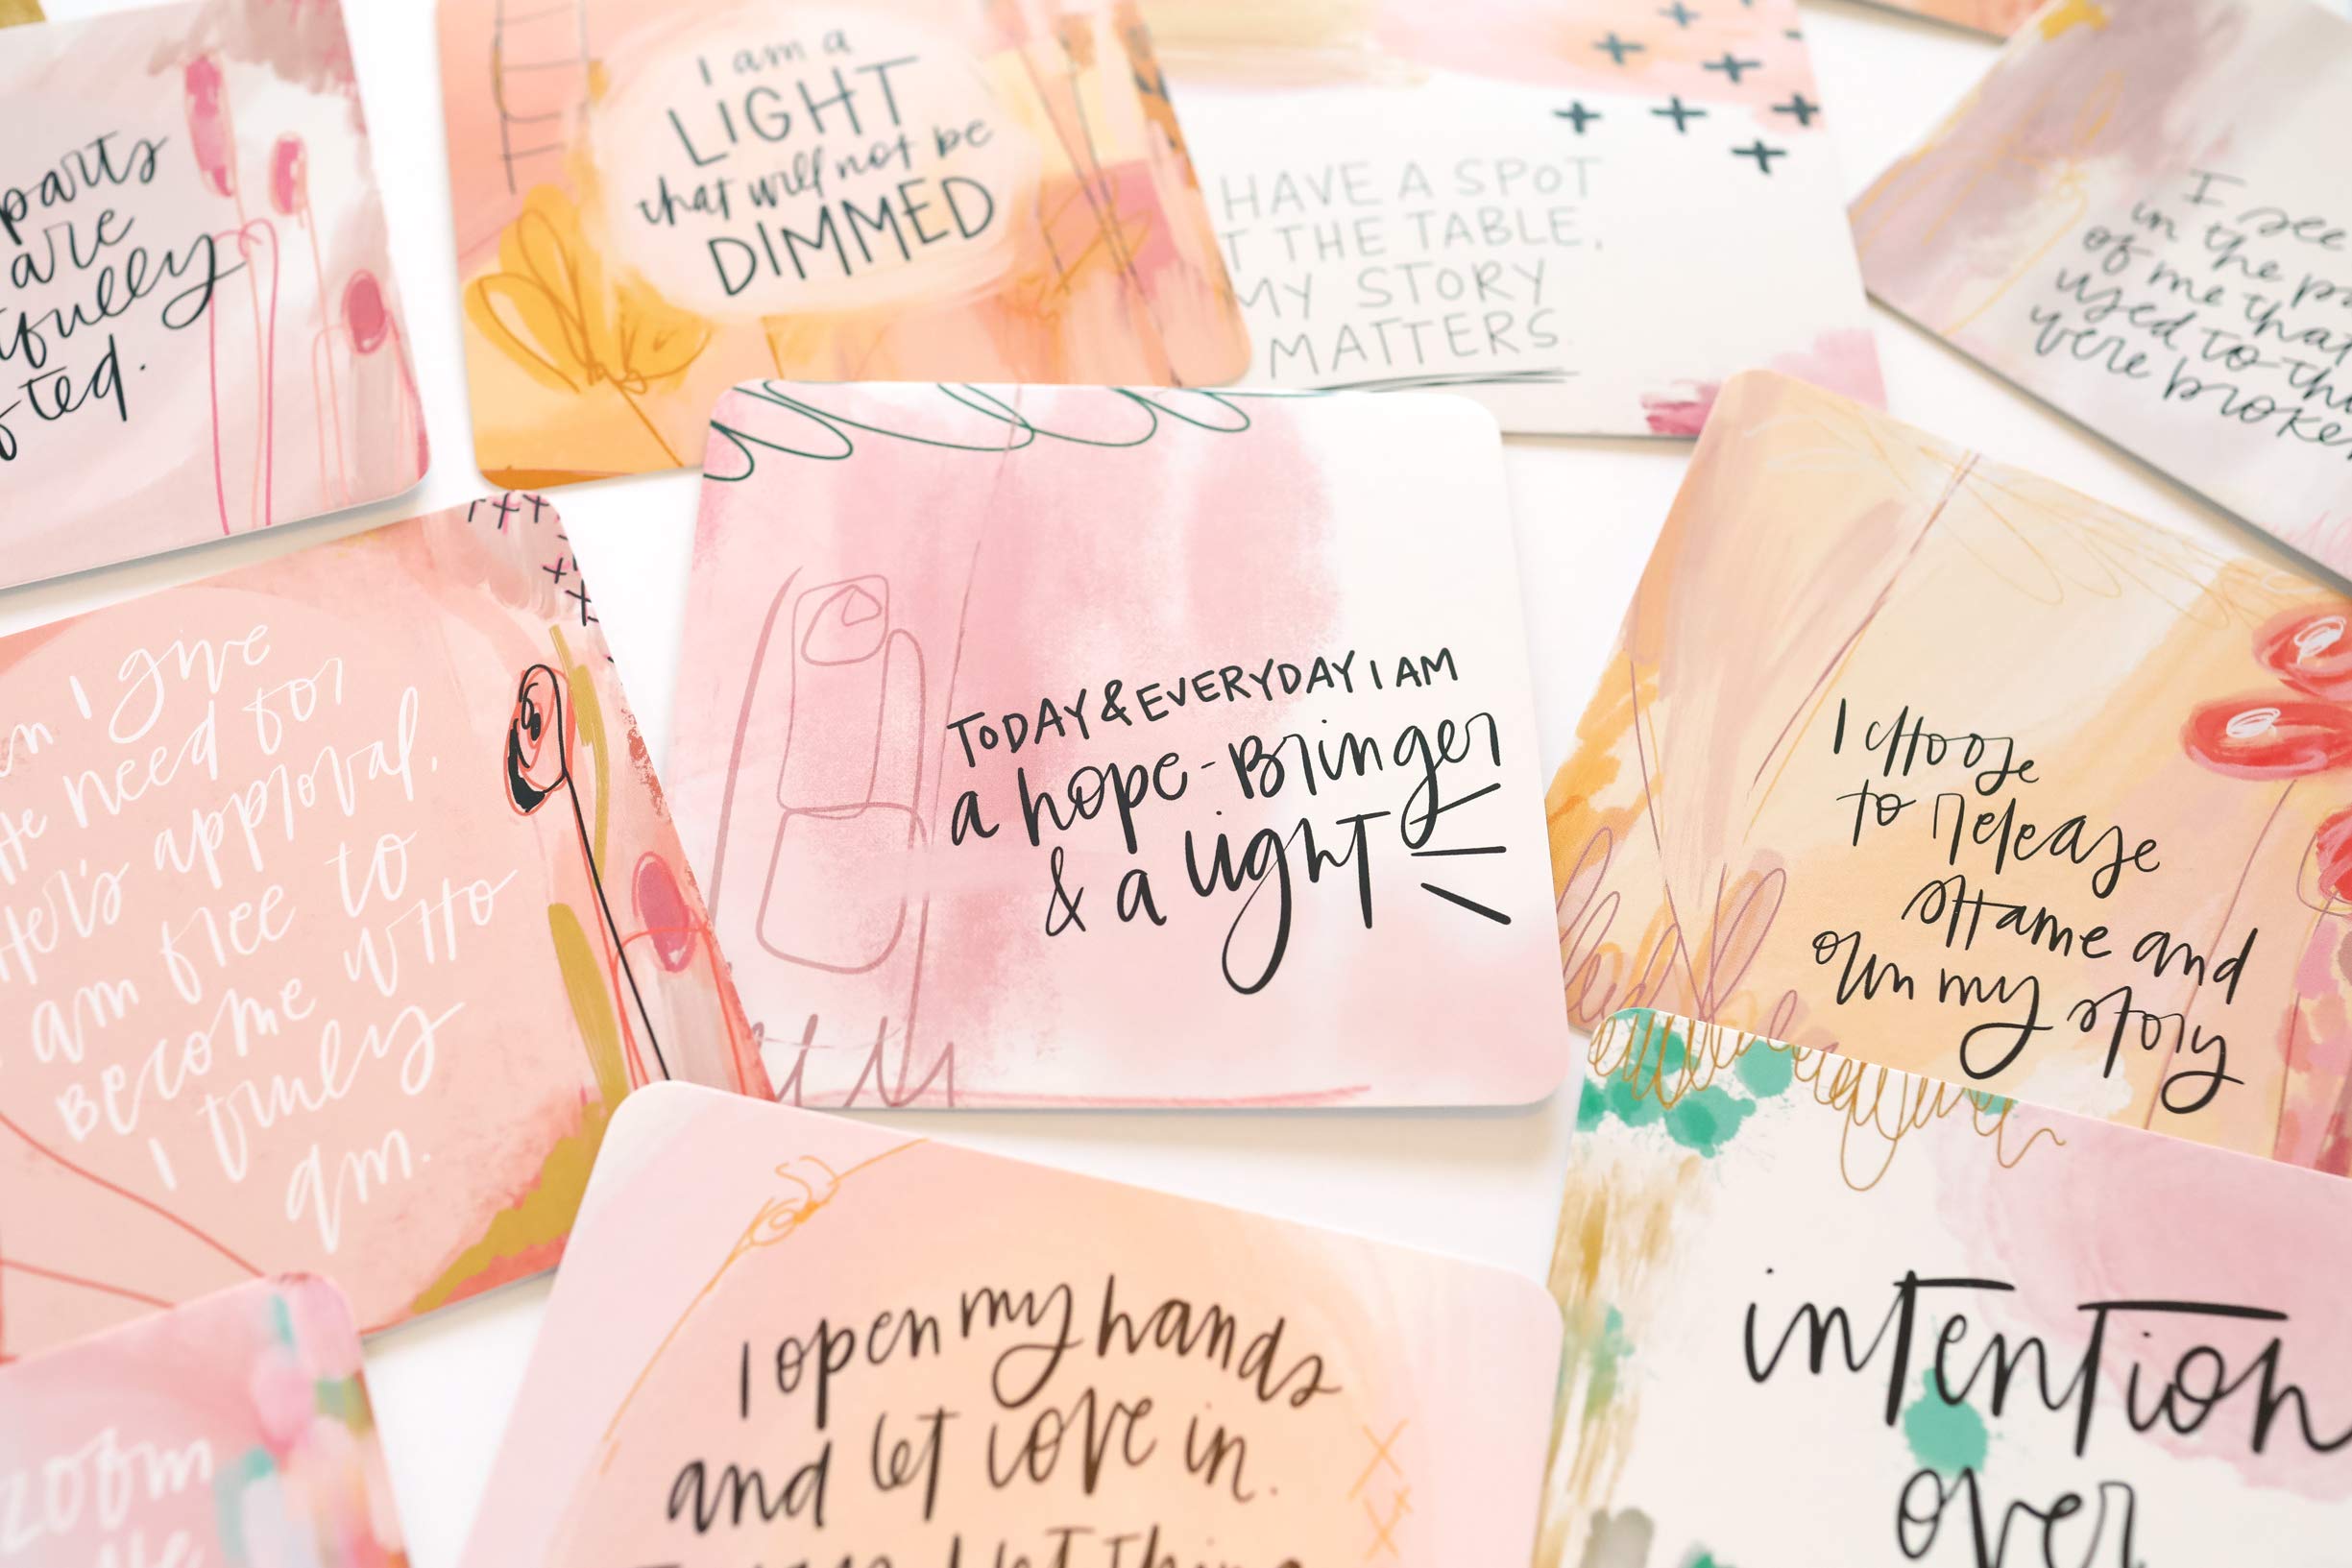 parts
are
I am a
LIGHT
that will not be
DIMMED
HAVE A SPOT
THE TABLE,
MY STORY
MATTERS
I see
in the
of me that
used to
were
I give
need for
approval.
am free to
become who
I truly
am.
TODAY & EVERYDAY I AM
a hope-Bringer
& a light
I choose
to release
shame and
own my story
I open my hands
and let love in.
intention
over